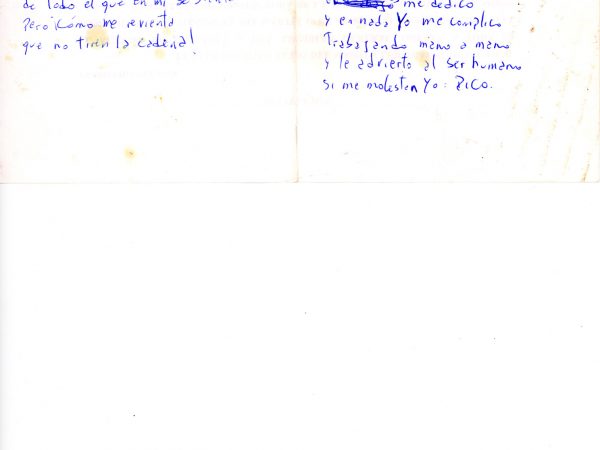 de Todo el que en mi se sienta
Pero ¡Cómo me revienta
que no tiren la cadena!
me dedico
y en nada Yo me complico
Trabajando mano a mano
y le advierto al ser humano
si me molestan Yo: PICO.